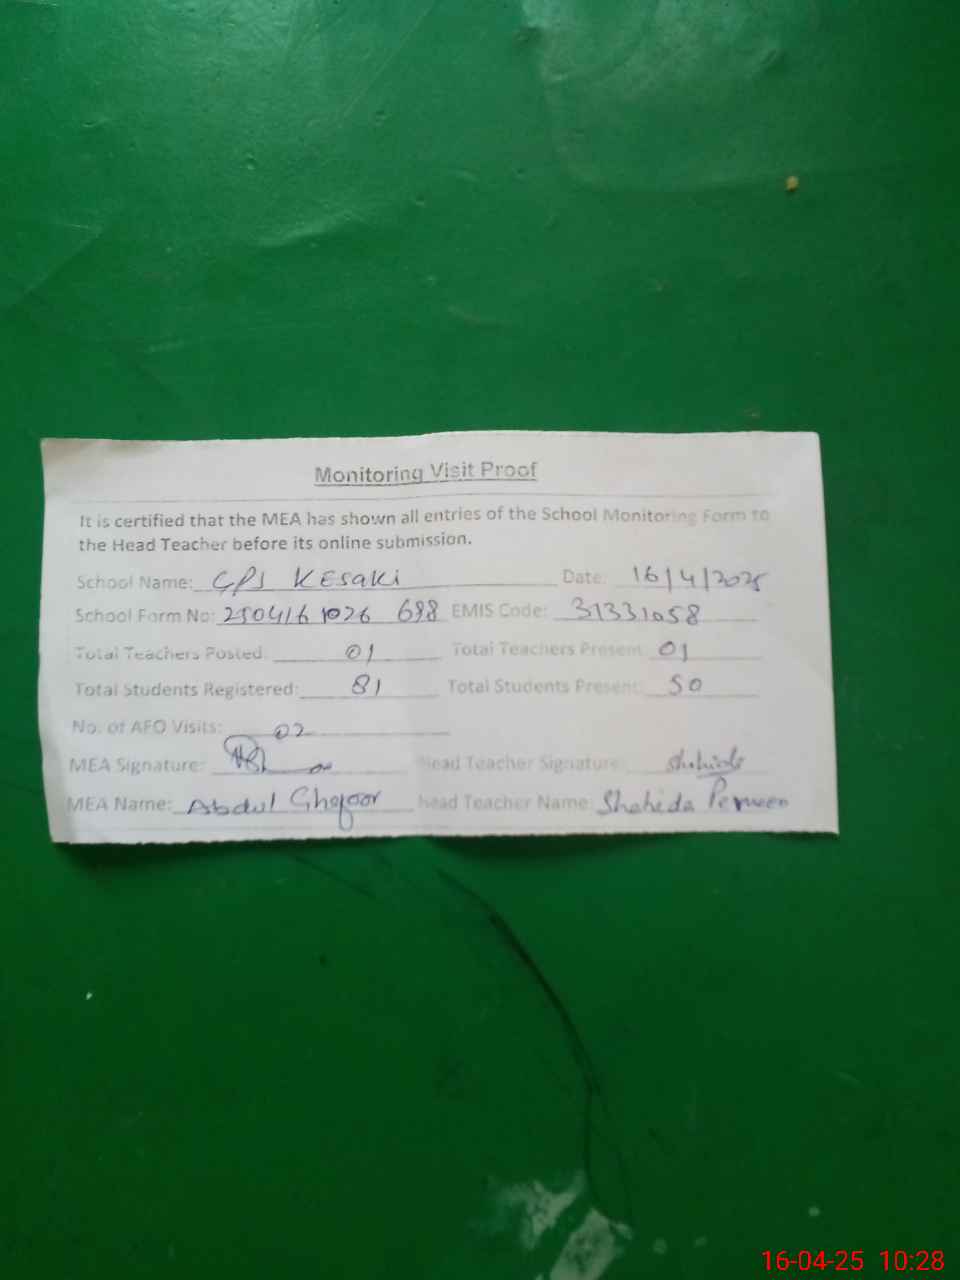 Monitoring Visit Proof
It is certified that the MEA has shown all entries of the School Monitoring Form to
the Head Teacher before its online submission.
School Name: GPS KESaKi Date: 16/4/2025
School Form No: 250416 1026 698 EMIS Code: 31331058
Total Teachers Posted: 01 Total Teachers Present: 01
Total Students Registered: 81 Total Students Present: 50
No. of AEO Visits: 02
MEA Signature: Head Teacher Signature: Shahida
MEA Name: Abdul Ghafoor Head Teacher Name: Shaheda Perveen
16-04-25 10:28